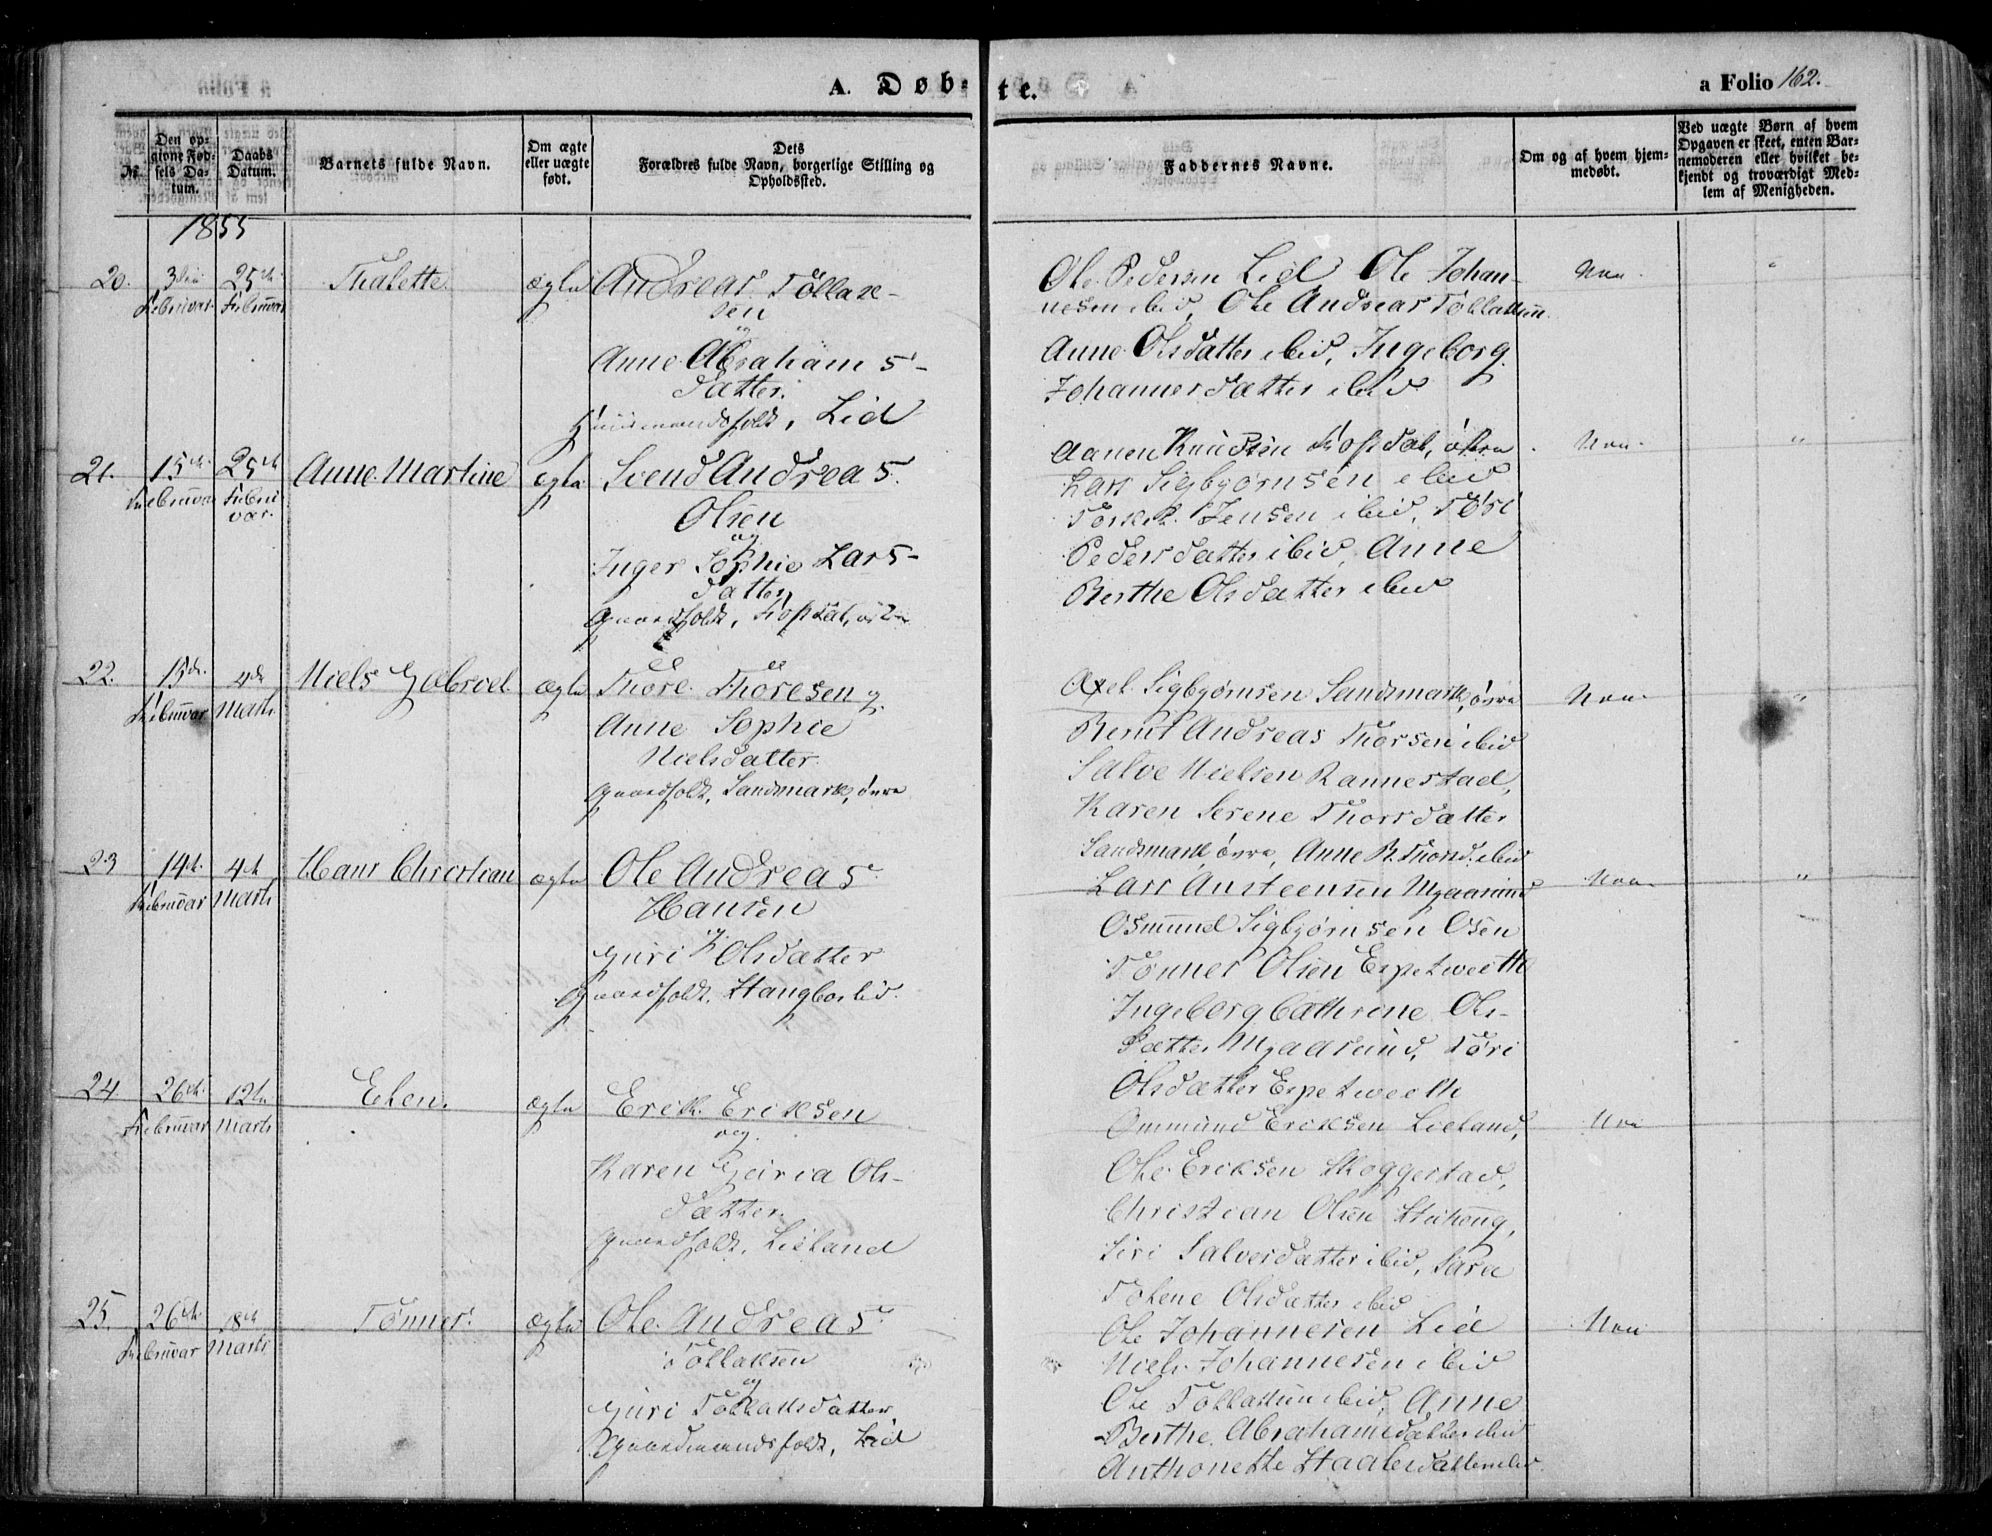 A. Døbte. a Folio 162.
No. Den opgivne Fødsels Datum. Daabs Datum. Barnets fulde Navn. Om ægte eller uægte født. Dets Forældres fulde Navn, borgerlige Stilling og Opholdssted. Faddernes Navne. Om og af hvem hjemmedøbt. Ved uægte Børn af hvem Opgaven er skeet, enten Barnemoderen eller hvilket bekjendt og troværdigt Medlem af Menigheden.
1855
20. 3die Februar 25de Februar Thalette ægte Andreas Tollak-
sen
og
Anne Abrahams-
datter.
Huusmandsfolk, Lid
Ole Pedersen Lid Ole Johan-
nesen ibid, Ole Andreas Tollaksen
Anne Olsdatter ibid, Ingeborg
Johannesdatter ibid
21. 15de Februar 25de Februar Anne Martine ægte Svend Andreas
Olsen
og
Inger Sophie Lars-
datter
Gaardfolk,
Aanen Knudsen
Lars Sigbjørnsen ibid
Jensen ibid, Tøri
Pedersdatter ibid, Anne
Berthe Olsdatter ibid
22. 15de Februar 4de Marts Niels Gabriel ægte Thore Thoresen og
Anne Sophie
Nielsdatter
Gaardfolk, Sandsmark, øvre
Axel Sigbjørnsen Sandsmark, øvre
Bernt Andreas Thorsen ibid
Salve Nielsen Rannestad,
Karen Serene Thorsdatter
Sandsmark, øvre, Anne B. Thorsd. ibid
23 14de Februar 4de Marts Hans Christian ægte Ole Andreas
Hansen
og
Guri Olsdatter
Gaardfolk,
Lars Austeensen Mygaarund
Osmund Sigbjørnsen Osen
Tønnes Olsen Espetweeth
Ingeborg Cathrine Ols-
datter Mygaarund, Tøri
Olsdatter Espetweeth
24. 26de Februar 12te Marts Elen. ægte Erik Eriksen
og
Karen Ols-
datter.
Gaardfolk, Lieland
Ommund Eriksen Lieland,
Ole Eriksen Skoggestad,
Christian Olsen
Siri Salvesdatter ibid, Sara
Tolene Olsdatter ibid
25. 26de Februar 18de Marts Tønnes. ægte Ole Andreas
Tollaksen
og
Guri Tollaksdatter
Gaardmandsfolk, Lid
Ole Johannesen Lid
Niels Johannesen ibid
Ole Tollaksen ibid, Anne
Berthe Abrahamsdatter ibid
Anthonette